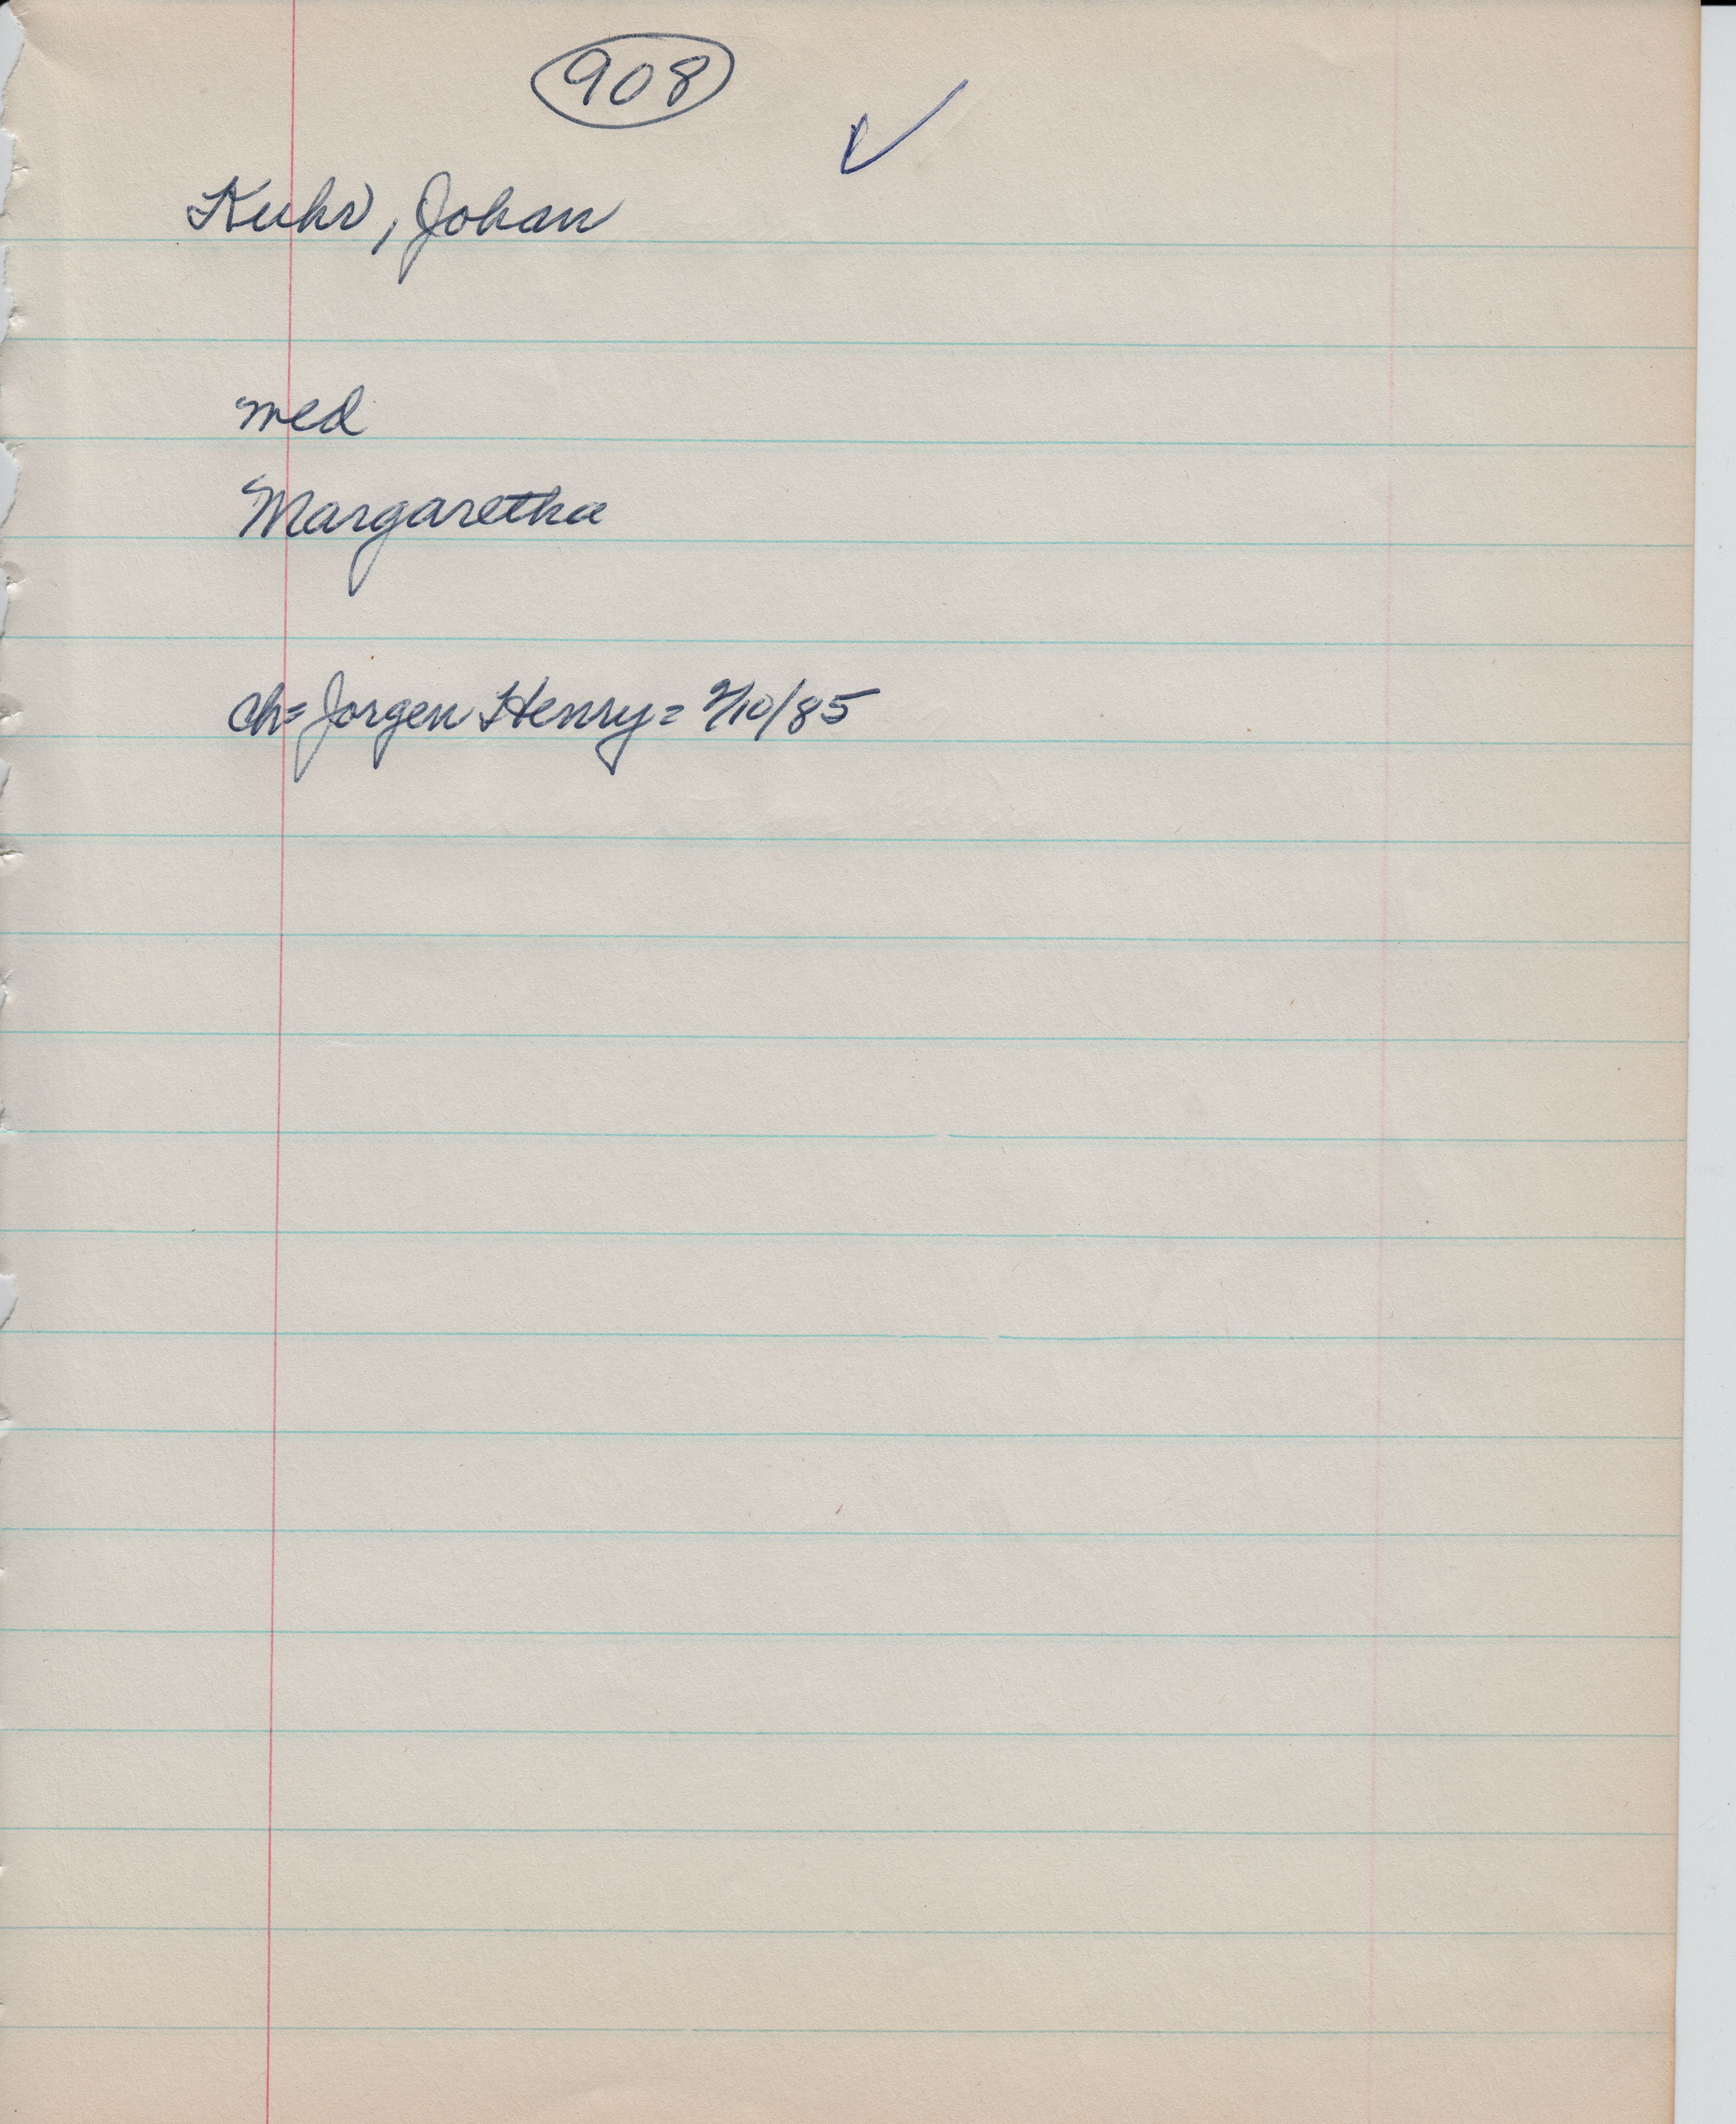 908
✓
Kuhr, Johan
med
Margaretha
ch= Jorgen Henry= 9/10/85